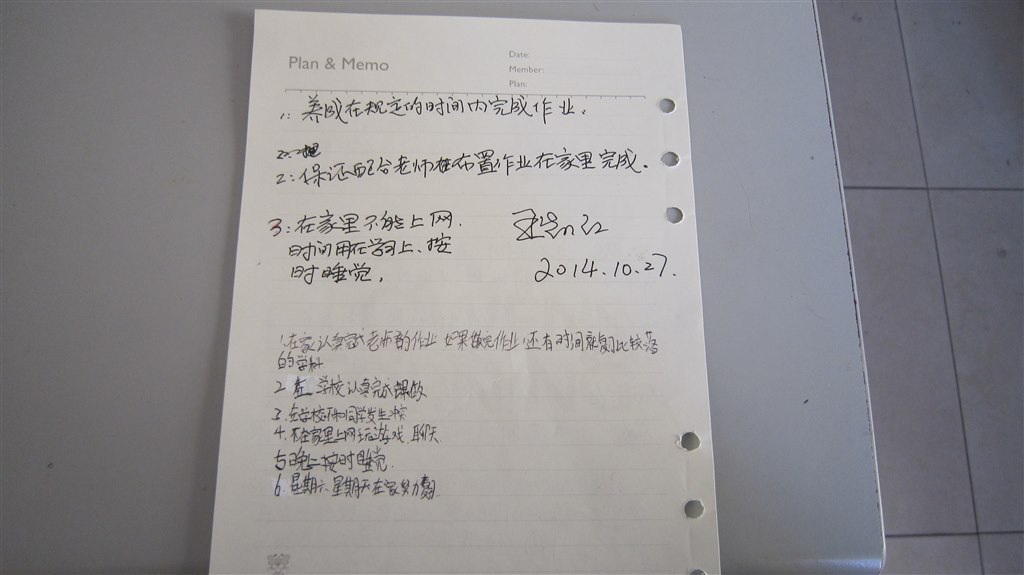 Plan & Memo
Date:
Member:
Plan:
1: 养成在规定的时间内完成作业。
2:保证配合老师在布置作业在家里完成。
3:在家里不能上网.
时间用在学习上、按
时睡觉。
2014.10.27.
1.在家认真完成老师的作业 如果做完作业 还有时间就复习比较落
的学科
2 在 学校认真完成课
3.在学校不和同学发生
4.不在家里上网玩游戏.聊天
5晚上按时睡觉.
6.星期六.星期天在家努力